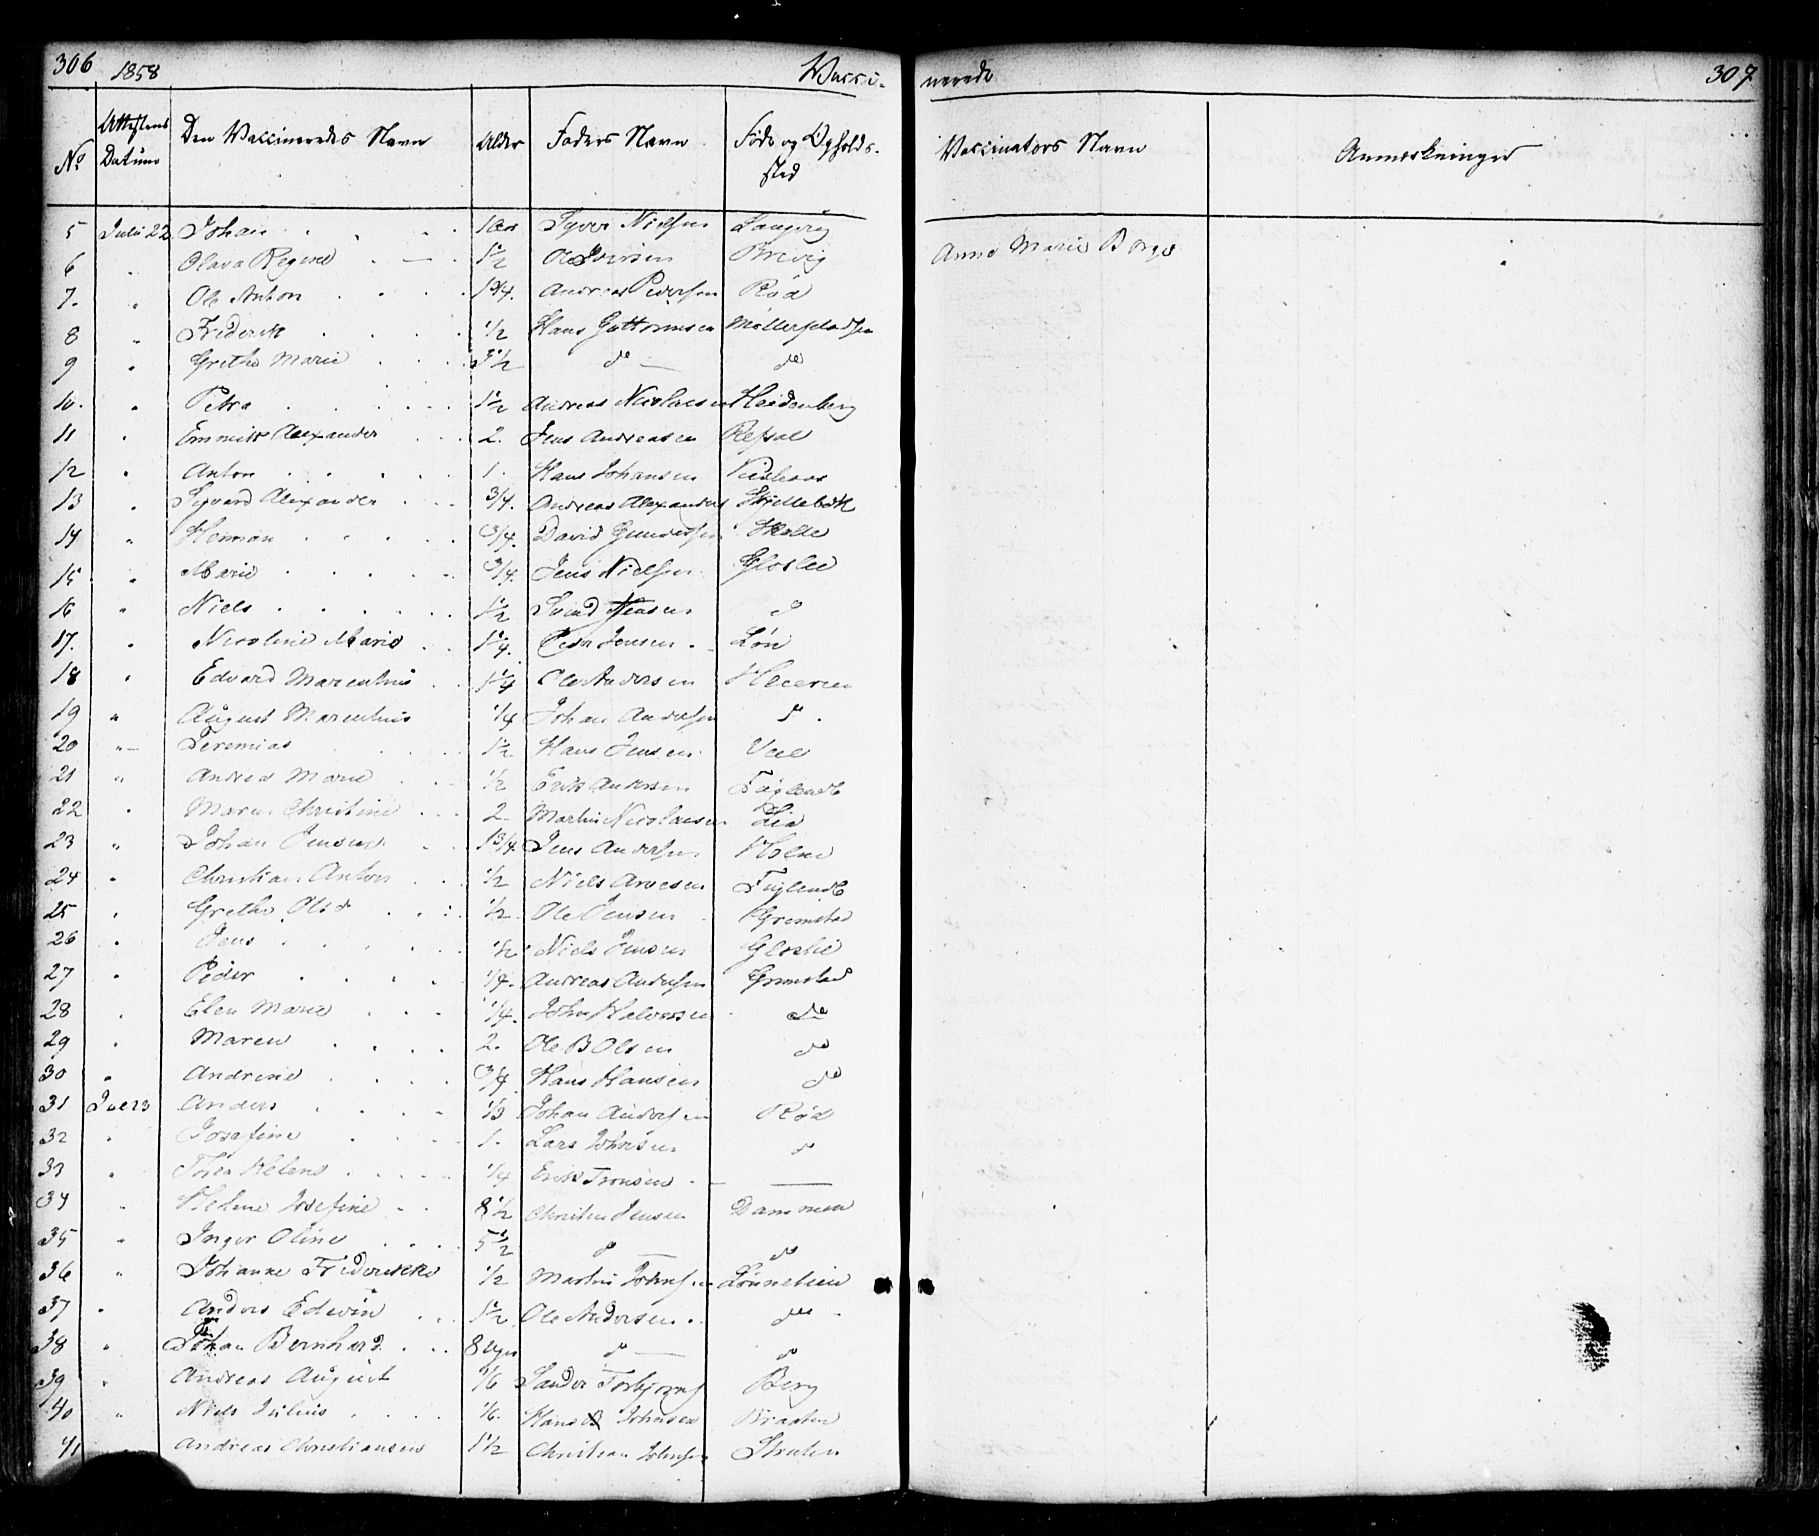 306 1858 Vacci-
nerede 307
No Attestens Datum Den Vaccineredes Navn Alder Faders Navn Føde og Opholds-sted Vaccinators Navn Anmærkninger
5 Juli 22 Johan 1 Syver Nielsen Langvig Anne Marie Borge
6 " Olava Regine 1 1/2 Ole Iversen Brevig
7. " Ole Anton 1 3/4. Andreas Pedersen Rød
8 " Frederik 1/2 Hans Guttormsen Møllerpladsen
9 " Grethe Marie 3 1/2 do do
10. " Petra 1 1/2 Andreas Nicolaisen Heidenberg
11 " Emmik Alexander 2. Jens Andreasen Refsal
12 " Anton 1. Hans Johansen
13 " Syvard Alexander 3/4. Andreas Alexanders Skillebek
14 " Herman 3/4. David Gundersen
15 " Marie 3/4. Jens Nielsen Gloslie
16 " Niels 1 1/2 Svend Jensen do
17. " Nicoline Marie 1 1/4. Peder Jensen Løn
18 " Edvard Marenthius 1 1/4 Ole Andersen
19 " August Marenthius 1/4 Johan Andersen do
20 " Jeremias 1 1/2 Hans Jensen Veel
21 " Andrea Marie 1/2 Erik Andersen Fuglendb
22 " Maren Christine 2. Martin Nicolaisen Lia
23 " Johan Jensen 1 3/4. Jens Andersen Holme
24 " Christian Anton 1/2 Niels Arvesen Fuglendb
25 " Grethe Olse 1/2 Ole Jensen Grimstad
26 " Jens 1/2 Niels Jensen Gloslie
27 " Peder 1/4. Andreas Andersen Grimstad
28 " Elen Marie 1/4. John Halvorsen do
29 " Maren 2. Ole B Olsen do
30 " Andrine 3/4 Hans Hansen do
31 Anders 1/3 Johan Andersen Rød
32 " Josefine 1. Lars Johnsen do
33 " Thea Helene 1/4 Erik Tronsen —
34 " Helene Josefine 8 1/2 Christen Jensen Dammen
35 " Inger Oline 5 1/2 do do
36 " Johanne Frederikke 1/2 Martin Johnsen Lønnelien
37 " Anders Edwin 1 1/2 Ole Andersen do
38 " Johan Bernhard 8 Uger do do
39 " Andreas August 1/6 Sander Torbjorns Berg
40 " Niels Julius 1/6. Hans Johnsen Braaten
41 Andreas Christiansen 1 1/2 Christian Johnsen Struten